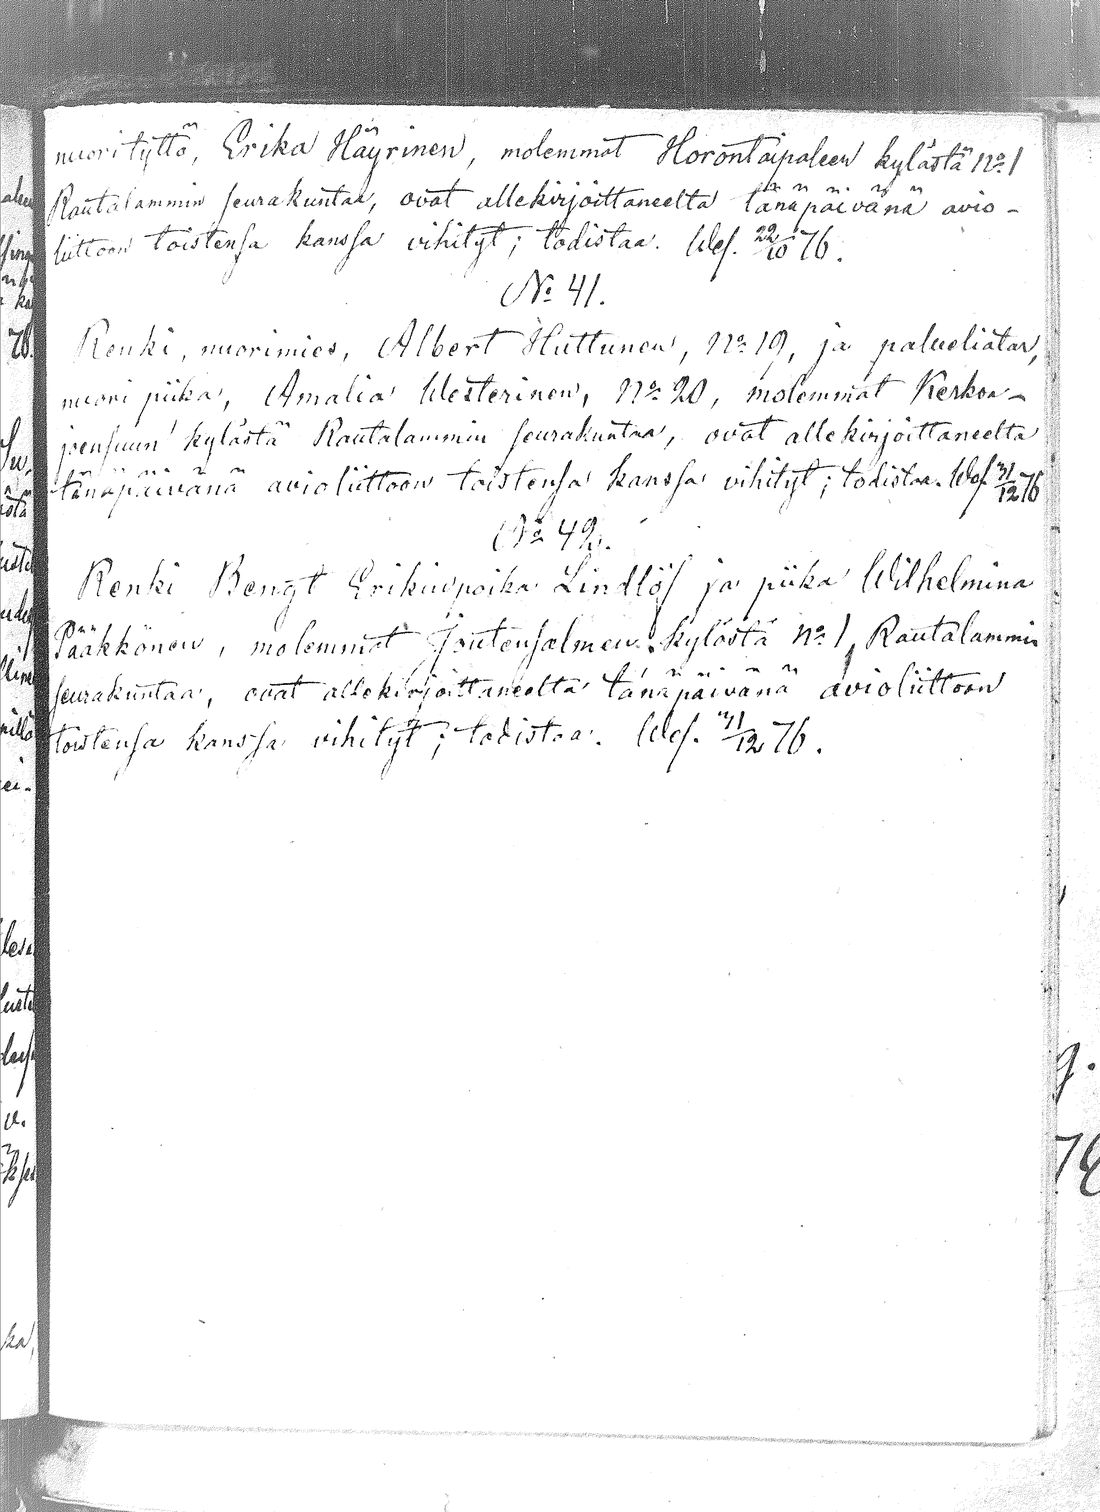 nuori tyttö, Erika Häyrinen, molemmat Horontaipaleen kylästä No 1
Rautalammin seurakuntaa, ovat allekirjoittaneelta tänäpäivänä avio-
liittoon toistensa kanssa vihityt; todistaa. Wsf. 22/10 76.
No 41.
Renki, nuorimies, Albert Huttunen, No 19, ja palveliatar,
nuori piika, Amalia Westerinen, No 20, molemmat Kerkon-
jensuun kylästä Rautalammin seurakuntaa, ovat allekirjoittaneelta
tänäpäivänä avioliittoon toistensa kanssa vihityt; todistaa. Wsf. 31/12 76
No 42.
Renki Bengt Erikinpoika Lindlöf ja piika Wilhelmina
Pääkkönen, molemmat Joutensalmen kylästä No 1, Rautalammin
seurakuntaa, ovat allekirjoittaneelta tänäpäivänä avioliittoon
toistensa kanssa vihityt; todistaa. Wsf. 31/12 76.